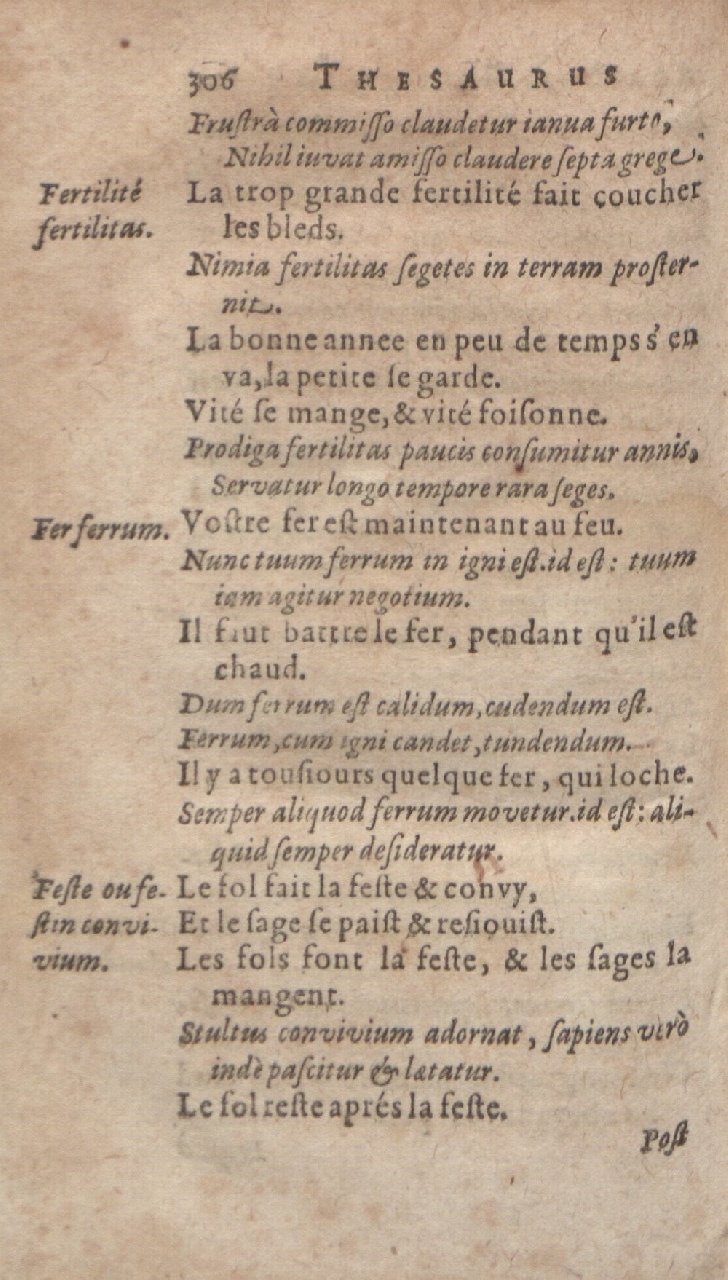 306 THESAURUS
Frustrà commisso claudetur ianua furto,
Nihil iuvat amisso claudere septa grege.
Fertilité La trop grande fertilité fait coucher
fertilitas. les bleds.
Nimia fertilitas segetes in terram proster-
nit.
La bonne annee en peu de temps s'en
va, la petite se garde.
Vité se mange, & vité foisonne.
Prodiga fertilitas paucis consumitur annis,
Servatur longo tempore rara seges.
Fer ferrum. Vostre fer est maintenant au feu.
Nunc tuum ferrum in igni est. id est: tuum
iam agitur negotium.
Il faut battre le fer, pendant qu'il est
chaud.
Dum ferrum est calidum, cudendum est.
Ferrum, cum igni candet, tundendum.
Il y a tousiours quelque fer, qui loche.
Semper aliquod ferrum movetur. id est: ali-
quid semper desideratur.
Feste ou fe- Le fol fait la feste & convy,
stin convi- Et le sage se paist & resiouist.
vium. Les fols font la feste, & les sages la
mangent.
Stultus convivium adornat, sapiens verò
indè pascitur & lætatur.
Le fol reste aprés la feste.
Post